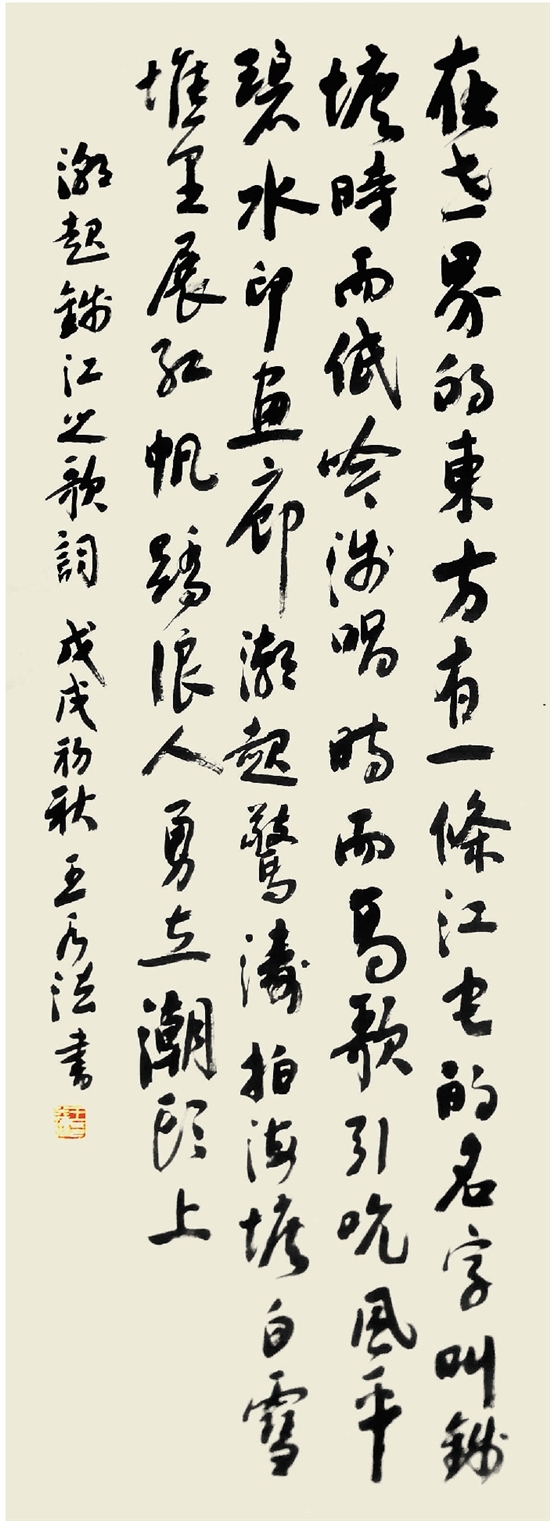 在世界的東方有一條江它的名字叫錢
塘時而低吟淺唱時而高歌引吭風平
碧水印画廊潮起驚濤拍海塘白雪
堆里展紅帆踏浪人勇立潮頭上
潮起錢江之歌詞 戊戌初秋 王乃法書